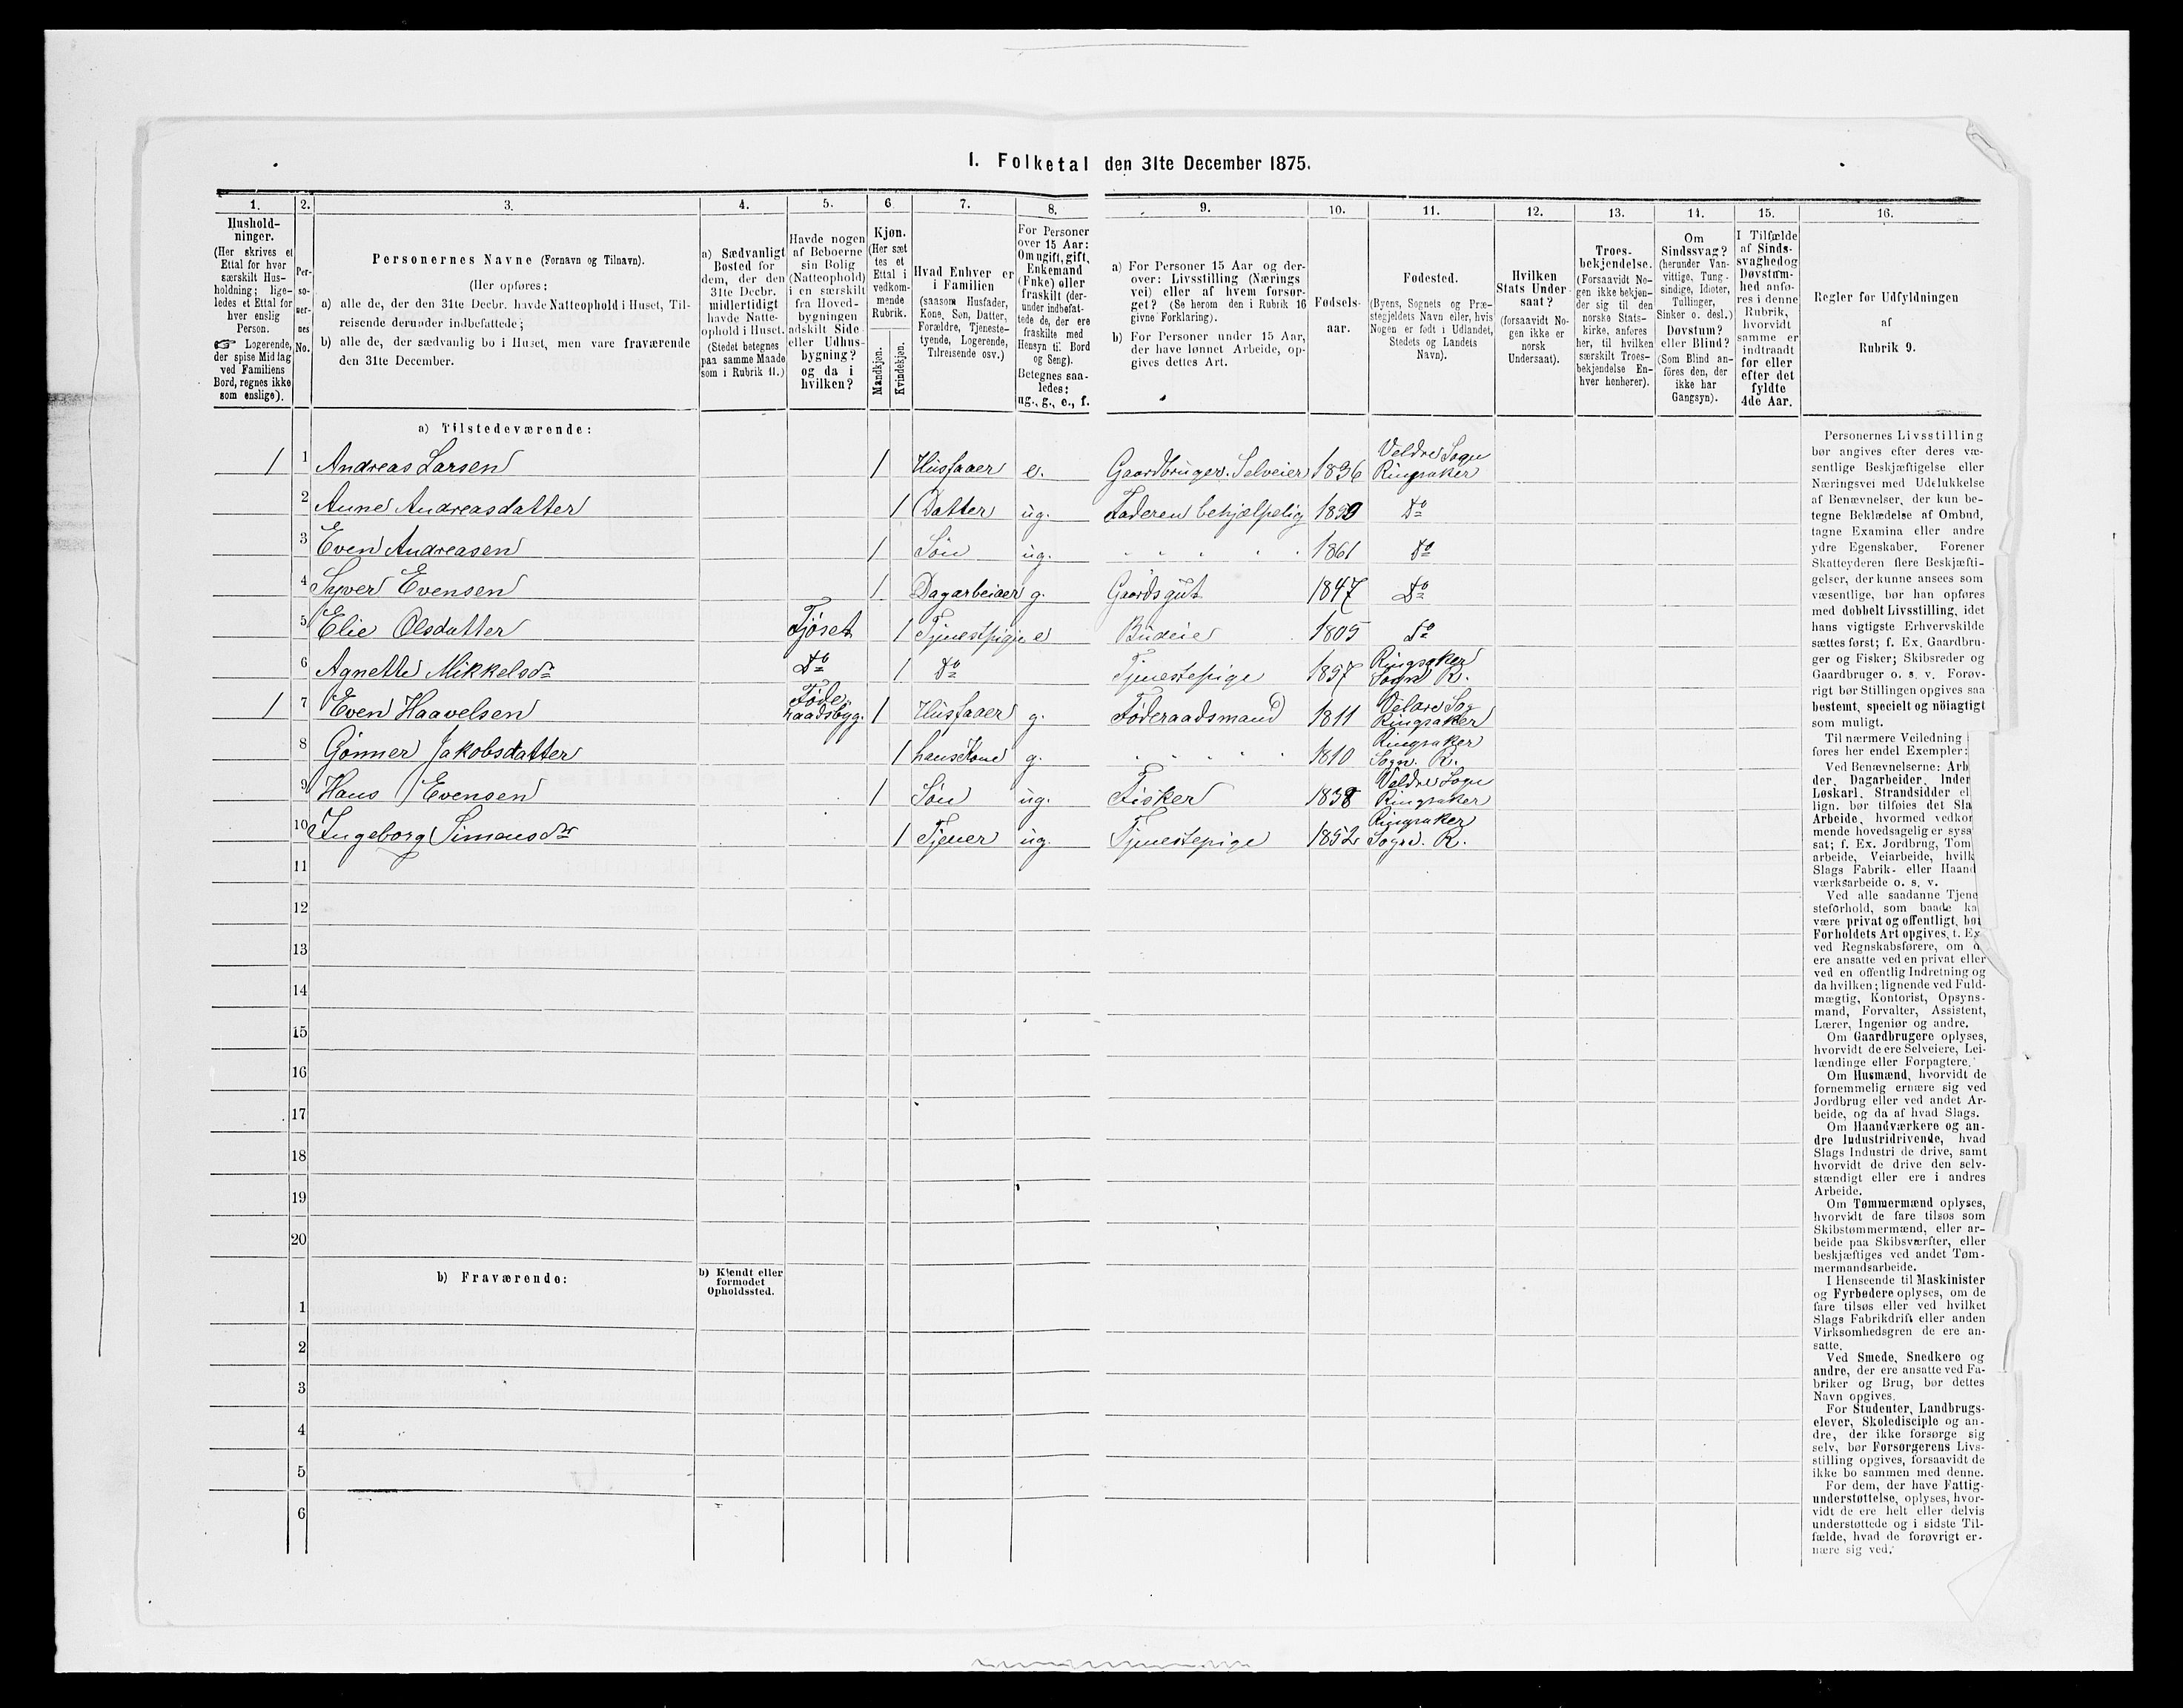 I. Folketal den 31te December 1875.
1. 2. 3. 4. 5. 6 7. 8. 9. 10. 11. 12. 13. 14. 15. 16.
Hushold-
ninger.
(Her skrives et
Ettal for hver
særskilt Hus-
holdning; lige-
ledes et Ettal for
hver enslig
Person.
☞ Logerende,
der spise Middag
ved Familiens
Bord, regnes ikke
som enslige).
Per-
so-
ner-
nes
No.
Personernes Navne (Fornavn og Tilnavn).
(Her opføres:
a) alle de, der den 31te Decbr. havde Natteophold i Huset, Til-
reisende derunder indbefattede;
b) alle de, der sædvanlig bo i Huset, men vare fraværende
den 31te December.
a) Sædvanligt
Bosted for
dem, der den
31te Decbr.
midlertidigt
havde Natte-
ophold i Huset.
(Stedet betegnes
paa samme Maade
som i Rubrik 11.)
Havde nogen
af Beboerne
sin Bolig
(Natteophold)
i en særskilt
fra Hoved-
bygningen
adskilt Side-
eller Udhus-
bygning?
og da i
hvilken?
Kjøn.
(Her sæt
tes et
Ettal i
vedkom-
mende
Rubrik.
Mandkjøn.
Kvindekjøn.
Hvad Enhver er
i Familien
(saasom Husfader,
Kone, Søn, Datter,
Forældre, Tjeneste-
tyende, Logerende,
Tilreisende osv.)
For Personer
over 15 Aar:
Om ugift, gift,
Enkemand
(Enke) eller
fraskilt (der-
under indbefat-
tede de, der ere
fraskilte med
Hensyn til Bord
og Seng).
Betegnes saa-
ledes:
ug., g., e., f.
a) For Personer 15 Aar og der-
over: Livsstilling (Nærings
vei) eller af hvem forsør-
get? (Se herom den i Rubrik 16
givne Forklaring).
b) For Personer under 15 Aar,
der have lønnet Arbeide, op-
gives dettes Art.
Fødsels-
aar.
Fødested.
(Byens, Sognets og Præ-
stegjeldets Navn eller, hvis
Nogen er født i Udlandet,
Stedets og Landets
Navn).
Hvilken
Stats Under
saat?
(forsaavidt No-
gen ikke er
norsk
Undersaat).
Troes-
bekjendelse.
(Forsaavidt No-
gen ikke bekjen-
der sig til den
norske Stats-
kirke, anføres
her, til hvilken
særskilt Troes-
bekjendelse En-
hver henhører).
Om
Sindssvag?
(herunder Van-
vittige, Tung-
sindige, Idioter,
Tullinger,
Sinker o. desl.)
Døvstum?
eller Blind?
(Som Blind an-
føres den, der
ikke har
Gangsyn).
I Tilfælde
af Sinds-
svaghed og
Døvstum-
hed anfø-
res i denne
Rubrik,
hvorvidt
samme er
indtraadt
før eller
efter det
fyldte
4de Aar.
Regler for Udfyldningen
af
Rubrik 9.
a) Tilstedeværende:
1 1 Andreas Larsen 1 Husfader e. Gaardbruger. Selveier 1836 Veldre Sogn Ringsaker
2 Anne Andreasdatter 1 Datter ug. Faderen behjælpelig 1859 Do
3 Even Andreasen 1 Søn ug. " " " " " 1861 Do
4 Syver Evensen 1 Dagarbeider g. Gaardsgut 1847 Do
5 Elie Olsdatter Fjøset 1 Tjenestpige e Budeie 1805 Do
6 Agnette Mikkelsdr Do 1 Do Tjenestepige 1857 Ringsaker Sogn R.
1 7 Even Haavelsen Føderaadsbyg. 1 Husfader g. Føderaadsmand 1811 Veldre Sog Ringsaker
8 Gønner Jakobsdatter 1 hans Kone g. " " " " 1810 Ringsaker Sogn. R.
9 Hans Evensen 1 Søn ug. Fisker 1838 Veldre Sogn Ringsaker
10 Ingeborg Simensdr 1 Tjener ug. Tjenestepige 1852 Ringsaker Sogn. R.
11
12
13
14
15
16
17
18
19
20
b) Fraværende:
b) Kjendt eller
formodet
Opholdssted.
1
2
3
4
5
6
Personernes Livsstilling
bør angives efter deres væ-
sentlige Beskjæftigelse eller
Næringsvei med Udelukkelse
af Benævnelser, der kun be-
tegne Beklædelse af Ombud,
tagne Examina eller andre
ydre Egenskaber. Forener
Skatteyderen flere Beskjæfti-
gelser, der kunne ansees som
væsentlige, bør han opføres
med dobbelt Livsstilling, idet
hans vigtigste Erhvervskilde
sættes først; f. Ex. Gaardbru-
ger og Fisker; Skibsreder og
Gaardbruger o. s. v. Forøv-
rigt bør Stillingen opgives saa
bestemt, specielt og nöiagtigt
som muligt.
Til nærmere Veiledning
føres her endel Exempler:
Ved Benævnelserne: Arb
der, Dagarbeider, Inder
Løskarl, Strandsidder el
lign. bør tilføies det Sla
Arbeide, hvormed vedkom
mende hovedsagelig er syss
sat; f. Ex. Jordbrug, Tom
arbeide, Veiarbeide, hvilk
Slags Fabrik- eller Haand
værksarbeide o. s. v.
Ved alle saadanne Tjene
steforhold, som baade ka
være privat og offentligt, bør
Forholdets Art opgives, f. Ex
ved Regnskabsførere, om d
ere ansatte ved en privat eller
ved en offentlig Indretning og
da hvilken; lignende ved Fuld-
mægtig, Kontorist, Opsyns-
mand, Forvalter, Assistent,
Lærer, Ingeniør og andre.
Om Gaardbrugere oplyses,
hvorvidt de ere Selveiere, Lei-
lændinge eller Forpagtere.
Om Husmænd, hvorvidt de
fornemmelig ernære sig ved
Jordbrug eller ved andet Ar-
beide, og da af hvad Slags.
Om Haandværkere og an-
dre Industridrivende, hvad
Slags Industri de drive, samt
hvorvidt de drive den selv-
stændigt eller ere i andres
Arbeide.
Om Tømmermænd oplyses,
hvorvidt de fare tilsøs som
Skibstømmermænd, eller ar-
beide paa Skibsværfter, eller
beskjæftiges ved andet Tøm-
mermandsarbeide.
I Henseende til Maskinister
og Fyrbødere oplyses, om de
fare tilsøs eller ved hvilket
Slags Fabrikdrift eller anden
Virksomhedsgren de ere an-
satte.
Ved Smede, Snedkere og
andre, der ere ansatte ved Fa-
briker og Brug, bør dettes
Navn opgives.
For Studenter, Landbrugs-
elever, Skoledisciple og an-
dre, der ikke forsørge sig
selv, bør Forsørgerens Livs-
stilling opgives, forsaavidt de
ikke bo sammen med denne.
For dem, der have Fattig-
understøttelse, oplyses, hvor-
vidt de ere helt eller delvis
understøttede og i sidste Til-
fælde, hvad de forøvrigt er-
nære sig ved.